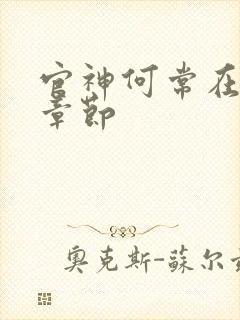 官神何常在
章節
奥克斯-蘇尔